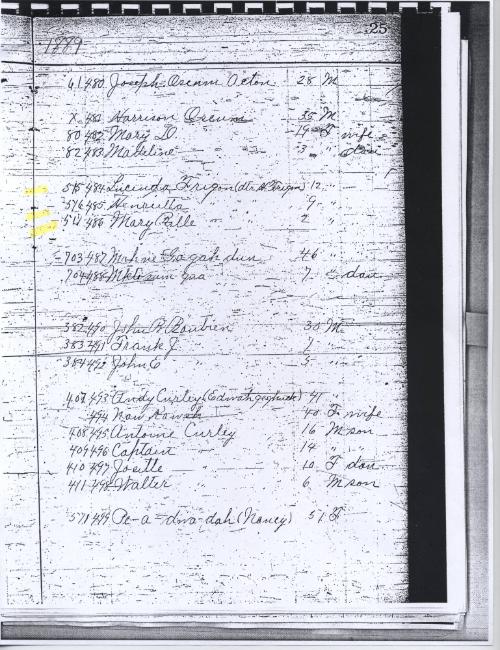 25
1899
61 480 Joseph Oscum Acton 28 M
X 481 Harrison Oscum 35 M
80 482 Mary D. 19 F wife
82 483 Madeline 3 " dau
575 484 Lucinda Frigon 12 "
576 485 Henrietta " 9 "
486 Mary Belle " 2 "
703 487 46 "
704 488 7 " dau
382 490 John R. 30 M
383 491 Frank J.
384 492 John C " 5 "
407 493 Andy Curley 41 "
494 40 F wife
408 495 Antoine Curley 16 M son
409 496 Captain " 14 " "
410 497 Josette " 10 F dau
411 498 Walter " 6 M son
571 499 Pe-a-dwa-dah (Nancy) 57 F